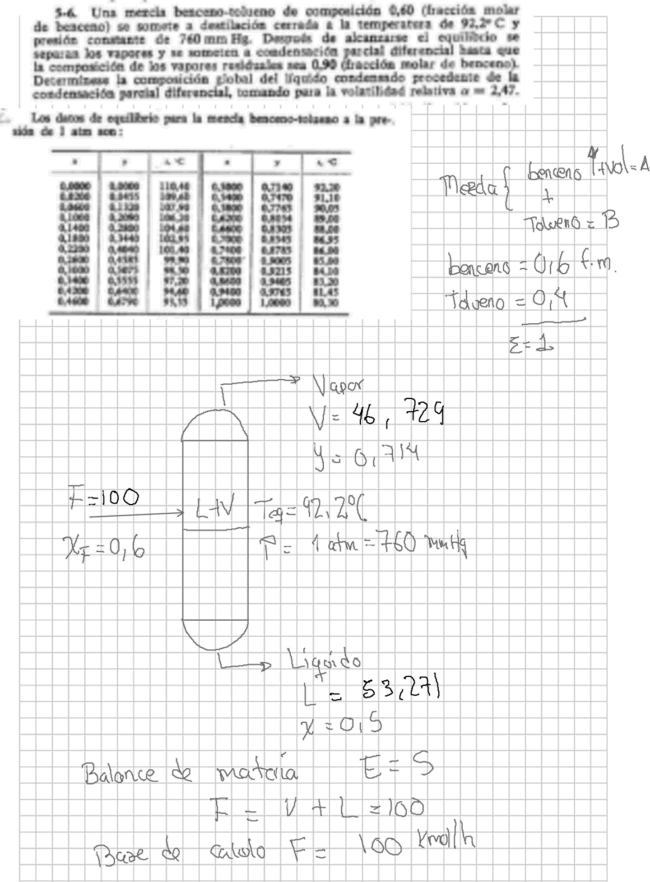 5-6. Una mezcla benceno-tolueno de composición 0,60 (fracción molar
de benceno) se somete a destilación cerrada a la temperatura de 92,2° C y
presión constante de 760 mm Hg. Después de alcanzarse el equilibrio se
separan los vapores y se someten a condensación parcial diferencial hasta que
la composición de los vapores residuales sea 0,90 (fracción molar de benceno).
Determínese la composición global del líquido condensado procedente de la
condensación parcial diferencial, tomando para la volatilidad relativa α = 2,47.
Los datos de equilibrio para la mezcla benceno-tolueno a la pre-
sión de 1 atm son:
x y t, °C x y t, °C
0,0000 0,0000 110,40 0,5000 0,7140 92,20
0,0200 0,0455 109,60 0,5400 0,7470 91,10
0,0600 0,1320 107,90 0,5800 0,7765 90,05
0,1000 0,2090 106,20 0,6200 0,8054 89,00
0,1400 0,2800 104,60 0,6600 0,8305 88,00
0,1800 0,3440 102,95 0,7000 0,8545 86,95
0,2200 0,4040 101,40 0,7400 0,8785 86,00
0,2600 0,4585 99,90 0,7800 0,9005 85,00
0,3000 0,5075 98,50 0,8200 0,9215 84,10
0,3400 0,5555 97,20 0,8600 0,9405 83,20
0,4200 0,6400 94,60 0,9400 0,9765 81,45
0,4600 0,6790 93,35 1,0000 1,0000 80,30
Mezcla { benceno +vol = A
+
Tolueno = B
benceno = 0,6 f.m.
tolueno = 0,4
Σ = 1
Vapor
V = 46, 729
y = 0,714
F = 100
L+V
Teq = 92,2°C
xF = 0,6
P = 1 atm = 760 mmHg
Líquido
L = 53,271
x = 0,5
Balance de materia E = S
F = V + L = 100
Base de calculo F = 100 Kmol/h